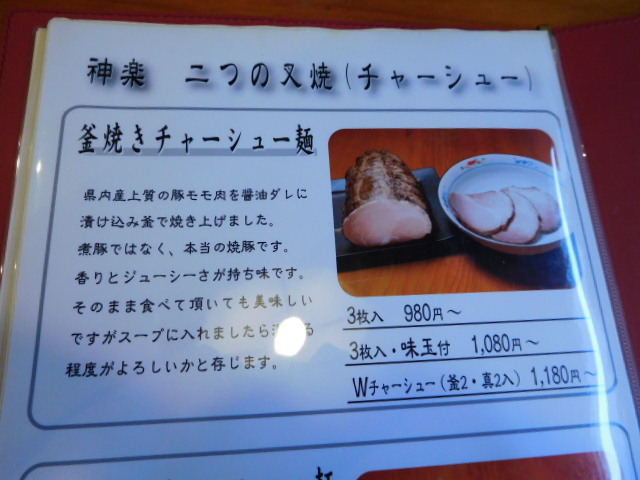 神楽 二つの叉焼(チャーシュー)
釜焼きチャーシュー麺
県内産上質の豚モモ肉を醤油ダレに
漬け込み釜で焼き上げました。
煮豚ではなく、本当の焼豚です。
香りとジューシーさが持ち味です。
そのまま食べて頂いても美味しい
ですがスープに入れましたら る
程度がよろしいかと存じます。
3枚入 980円~
3枚入・味玉付 1,080円~
Wチャーシュー(釜2・真2入) 1,180円~